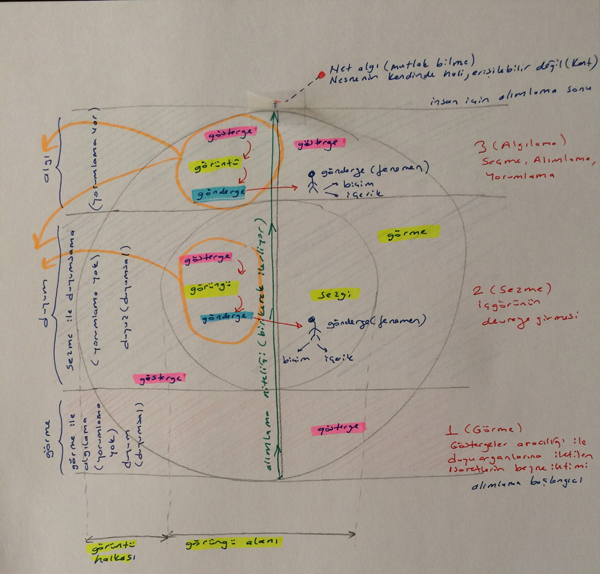 Net algı (mutlak bilme)
Nesnenin kendinde hali, erişilebilir değil (Kant)
insan için alımlama sonu
gösterge
gösterge
görüntü
gönderge
gönderge (fenomen)
biçim
içerik
3 (Algılama)
Seçme, Alımlama,
Yorumlama
algı
(yorumlama var)
görme
gösterge
görüngü
gönderge
sezgi
gönderge (fenomen)
biçim
içerik
2 (Sezme)
içgörünün
devreye girmesi
duyum
sezme ile duyumsama
(yorumlama yok)
duyuş (duyumsal)
alımlama niteliği (birikerek ilerliyor)
gösterge
gösterge
1 (Görme)
Göstergeler aracılığı ile
duyu organlarına iletilen
işaretlerin beyne iletimi
alımlama başlangıcı
görme
görme ile
algılama
(yorumlama
yok)
duyum
(duyumsal)
görüntü
halkası
görüngü alanı